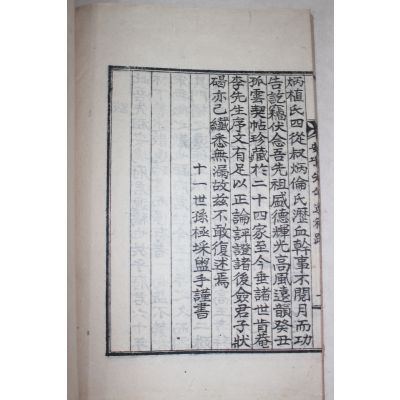 炳植氏四從叔炳倫氏瀝血幹事不閱月而功
告訖竊伏念吾先祖盛德輝光高風遠韻癸丑
孤雲契帖珍藏於二十四家至今世諸世肯菴
李先生序文有足以正論評證諸後僉君子狀
碣亦已纖悉無漏故玆不敢復述焉
十一世孫極埰盥手謹書